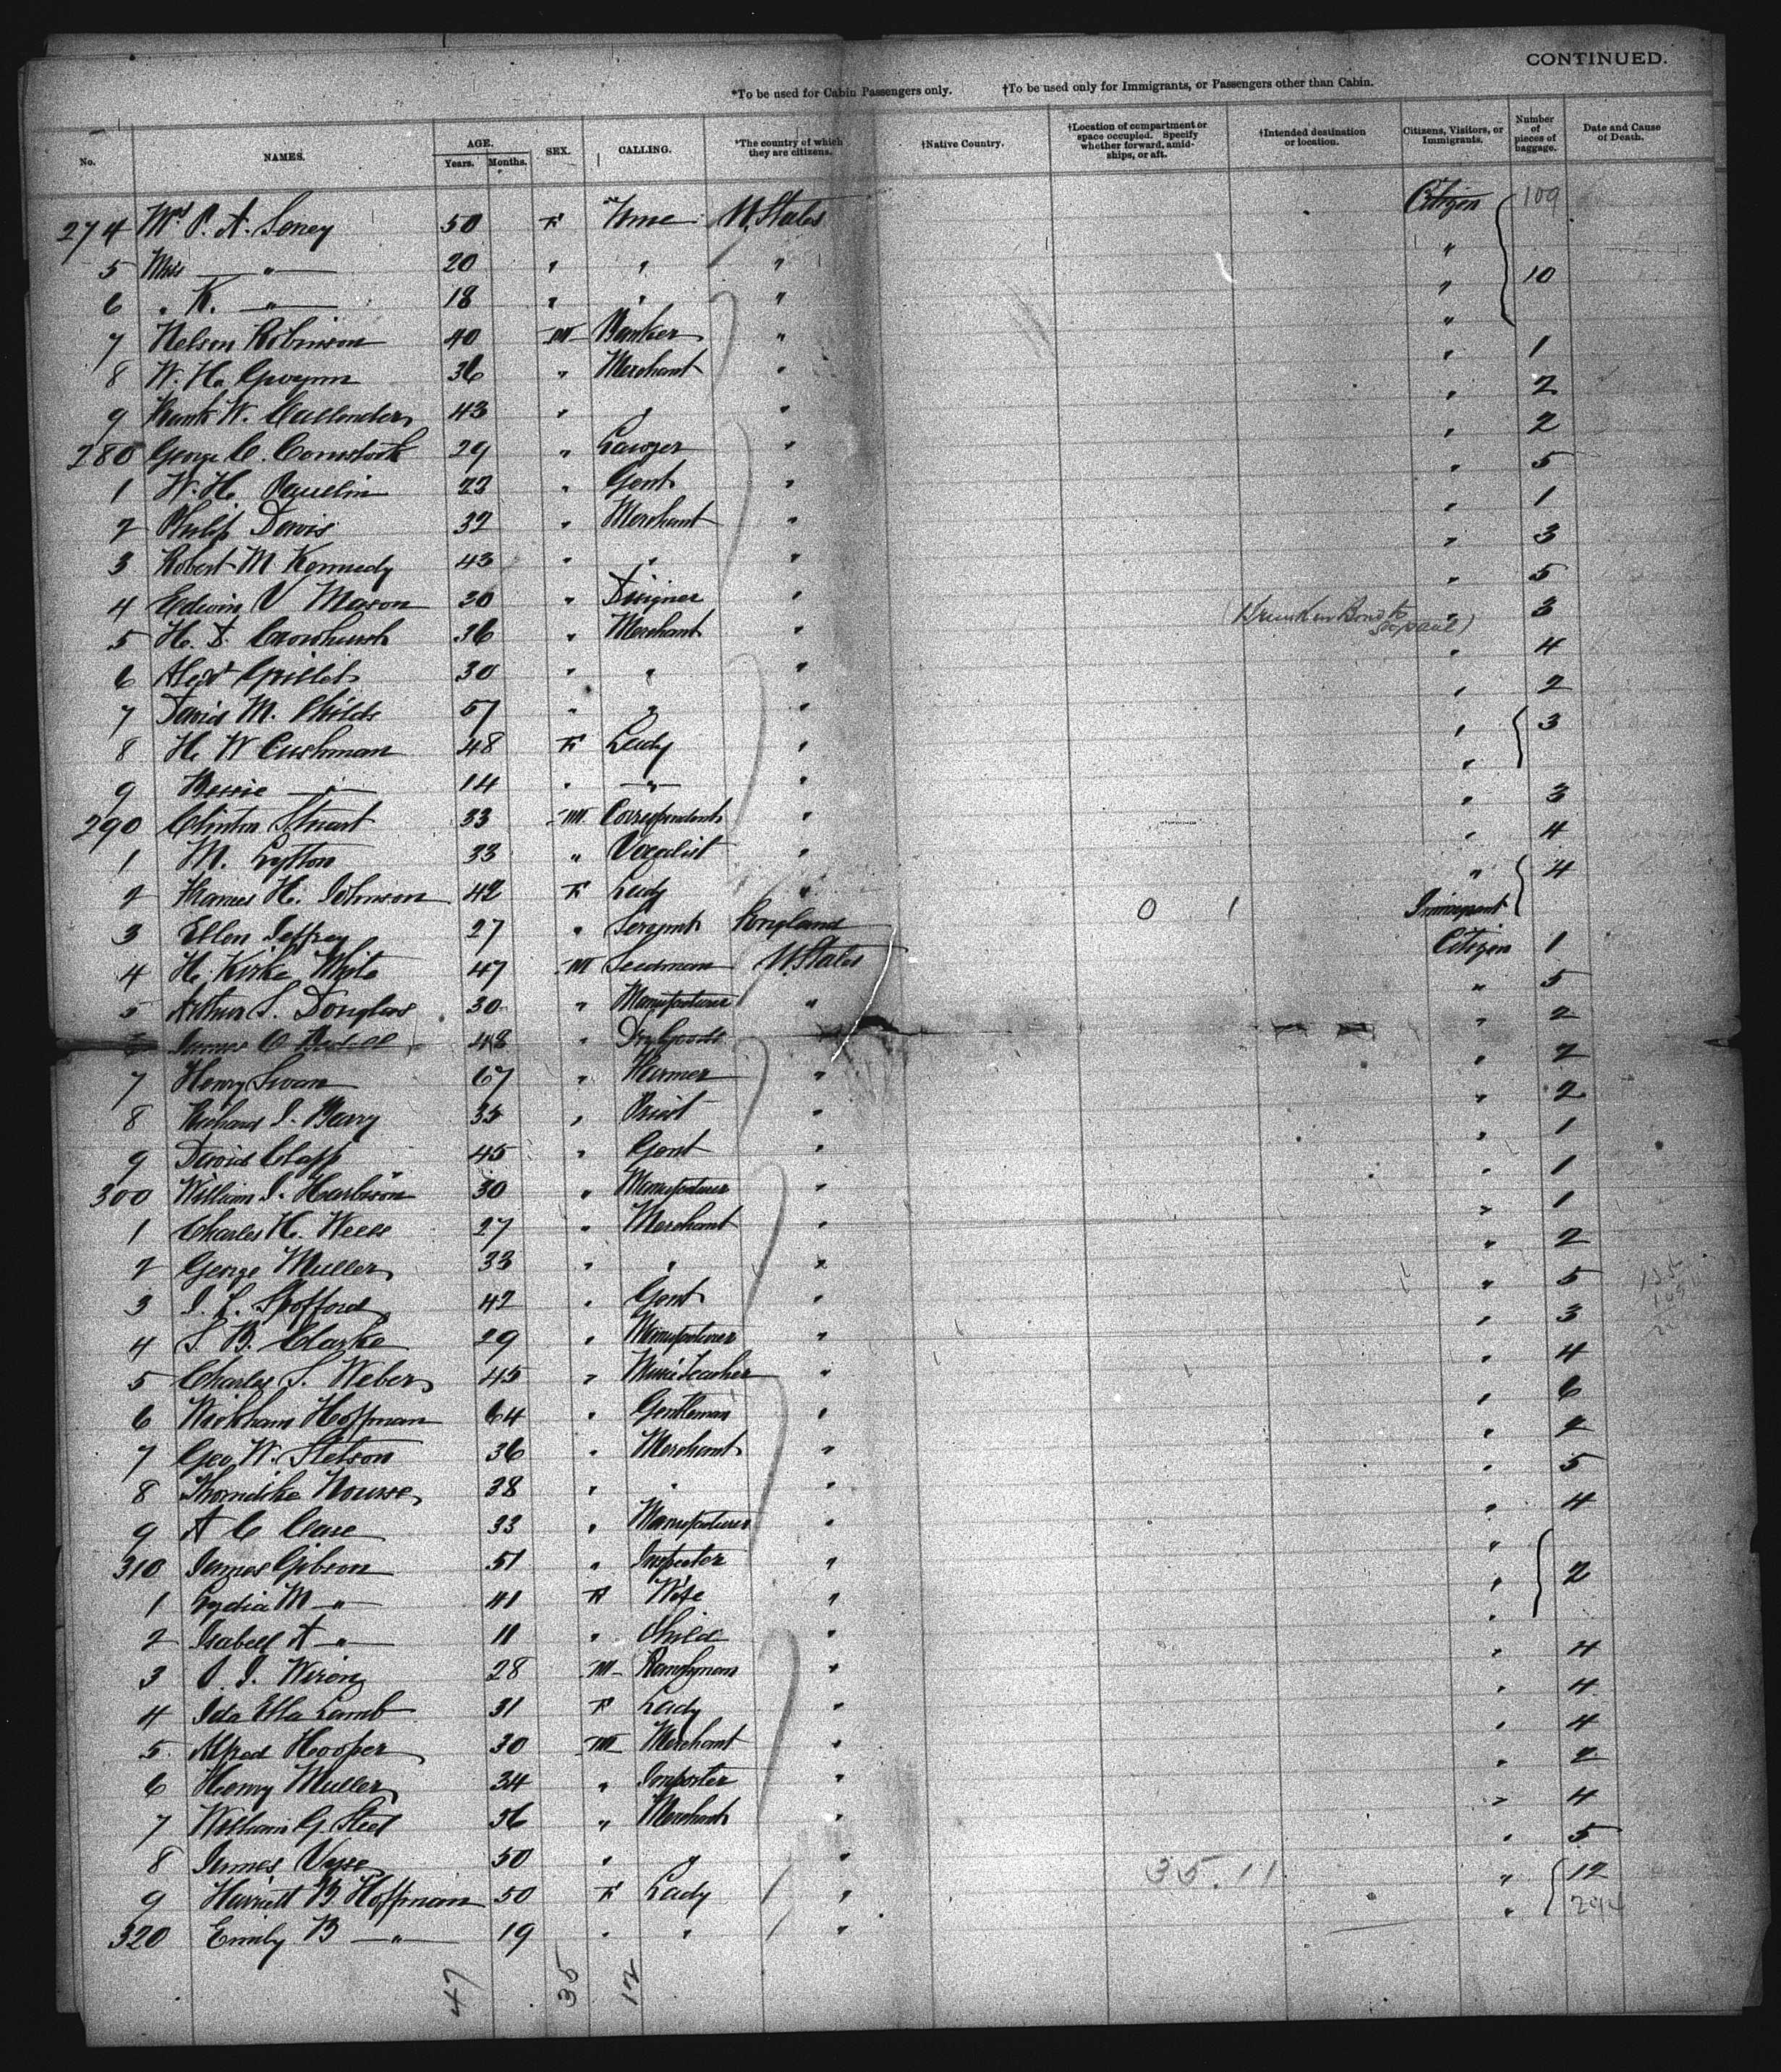 CONTINUED.
*To be used for Cabin Passengers only. †To be used only for Immigrants, or Passengers other than Cabin.
No. NAMES. AGE. Years. Months. SEX. CALLING. *The country of which they are citizens. †Native Country. †Location of compartment or space occupied. Specify whether forward, amidships, or aft. †Intended destination or location. Citizens, Visitors, or Immigrants. Number of pieces of baggage. Date and Cause of Death.
274 Mrs P. A. Seney 50 F U. States Citizen 109
5 Miss —〃— 20 〃 〃 〃 〃
6 〃 K. —〃— 18 〃 〃 〃 〃 10
7 Nelson Robinson 40 M Banker 〃 〃 1
8 W. H. Gwynn 36 〃 Merchant 〃 〃 2
9 Frank W. Callender 43 〃 〃 〃 〃 2
280 George C. Comstock 29 〃 Lawyer 〃 〃 5
1 W. H. 23 〃 Gent 〃 〃 1
2 Philip Davis 32 〃 Merchant 〃 〃 3
3 Robert M Kennedy 43 〃 〃 〃 〃 5
4 Edwin V Mason 30 〃 Designer 〃 〃 3
5 H. D. Crowhurst 36 〃 Merchant 〃 〃 4
6 Alex Grillet 30 〃 〃 〃 〃 2
7 David M. Childs 57 〃 〃 〃 〃 3
8 H. W Cushman 48 F Lady 〃 〃
9 Bessie —〃— 14 〃 —〃— 〃 〃 3
290 Clinton Stuart 33 M Correspondent 〃 〃 4
1 M. Lytton 33 〃 Vocalist 〃 〃 4
2 Frances H. Johnson 42 F Lady 〃
3 Ellen Jeffrey 27 〃 Servant England 0 1 Immigrant
4 H. Kirke White 47 M Seedman U. States Citizen 1
5 Arthur S. Douglas 30 〃 Manufacturer 〃 〃 5
James O 48 〃 Dry Goods 〃 2
7 Henry Swan 67 〃 Farmer 〃 〃 2
8 Richard J. Barry 35 〃 Priest 〃 〃 2
9 David Clapp 45 〃 Gent 〃 〃 1
300 William J. Harbison 30 〃 Manufacturer 〃 〃 1
1 Charles H. Wells 27 〃 Merchant 〃 〃 1
2 George Muller 33 〃 〃 〃 〃 2
3 J. L. Spofford 42 〃 Gent 〃 〃 5
4 S. B. Clarke 29 〃 Manufacturer 〃 〃 3
5 Charles S. Weber 45 〃 Music Teacher 〃 〃 4
6 Wickham Hoffman 64 〃 Gentleman 〃 〃 6
7 Geo W. Stetson 36 〃 Merchant 〃 〃 2
8 Thorndike Nourse 38 〃 〃 〃 〃 5
9 A C Case 33 〃 Manufacturer 〃 〃 4
310 James Gibson 51 〃 Inspector 〃 〃
1 Lydia M —〃— 41 F Wife 〃 〃 2
2 Isabell A —〃— 11 〃 Child 〃 〃
3 28 M 〃 〃 4
4 Ida Ella Lamb 31 F Lady 〃 〃 4
5 Alfred Hooper 30 M Merchant 〃 〃 4
6 Henry Muller 34 〃 Importer 〃 〃 2
7 William G. Steel 56 〃 Merchant 〃 〃 4
8 James Vyse 50 〃 〃 〃 〃 5
9 Harriett B. Hoffman 50 F Lady 〃 35.11 〃 12
320 Emily B —〃— 19 〃 〃 〃 〃 294
47 35 12